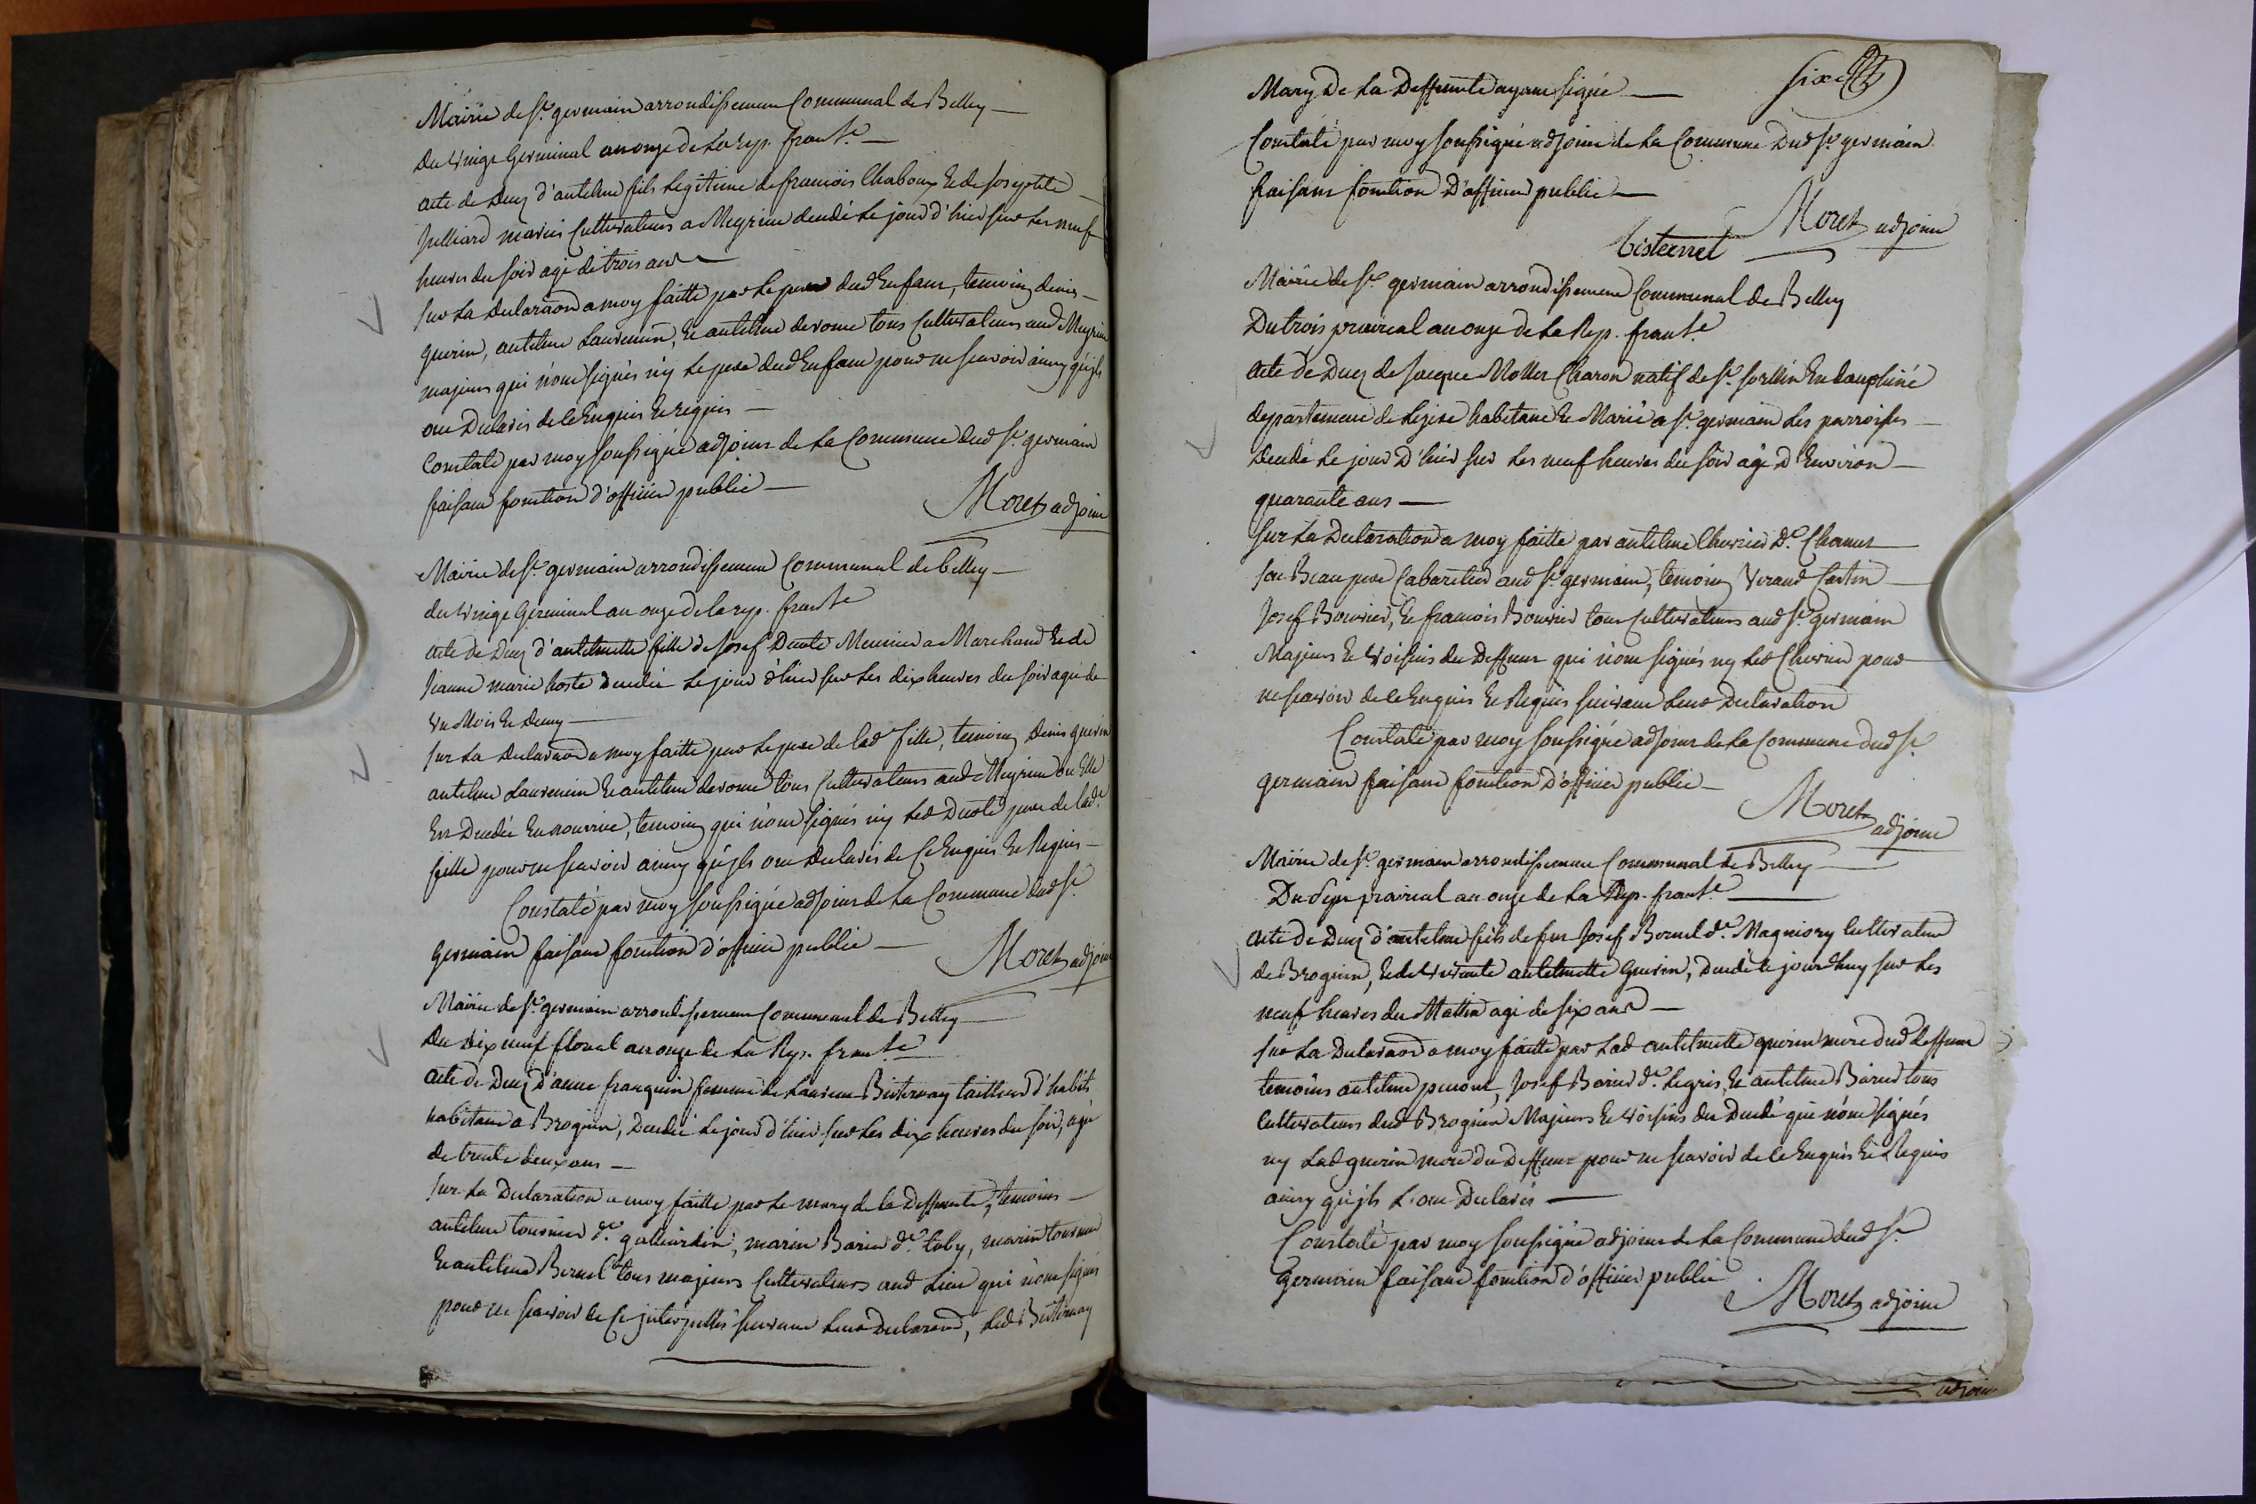 Mairie de St. germain arrondissement Communal de Belley
Du vingt Germinal an onze de la rep. franse.
acte de Decez d'antelme fils legitime de francois Chaboux et de
Julliard mariés Cultivateurs a Meyrieu decedé le jour d'hier sur les neuf
heures du soir agé de trois ans
Sur la Declaraon a moy faitte par le pere dud. Enfant, temoins denis
guerin, antelme Laurencin, et antelme derome tous Cultivateurs aud. Meyrieu
majeurs qui n'ont signés n'y le pere dud. Enfant pour ne scavoir ainsy qu'ils
ont Declarés de ce Enquis et requis
Constaté par moy soussigné adjoint de la Commune dud. St. germain
faisant fonction d'officier public
Moret adjoint
Mairie de St. germain arrondissement Communal de belley
du vingt Germinal an onze de la rep. franse
acte de Decez d'antelmette fille de Josef Meunier a Marchand et de
Jeanne marie hoste Decedée le jour d'hier sur les dix heures du soir agée de
un Mois et Demy
Sur la Declaraon a moy faitte par le pere de lad. fille, temoins Denis guerin
antelme Laurencin et antelme derome tous Cultivateurs aud. Meyrieu ou Elle
Est Decedée En nourrice, temoins qui n'ont signés n'y led. pere de lad.
fille pour ne scavoir ainsy qu'ils ont Declarés de Ce Enquis et Requis
Constaté par moy soussigné adjoint de la Commune dud. St.
Germain faisant fonction d'officier public
Moret adjoint
Mairie de St. germain arrondissement Communal de Belley
Du dix neuf floreal an onze de la Rep. franse
acte de Decez d'anne franquin femme de Laurent tailleur d'habits
habitant a Brognin, Decedée le jour d'hier sur les dix heures du soir, agée
de trente deux ans
Sur la Declaration a moy faitte par le mary de la Deffunte, temoins
antelme tournier de. , marin de. toby, marin tournier
et antelme Bernel tous majeurs Cultivateurs aud. Lieu qui n'ont signés
pour ne scavoir de Ce suivant leur Declaraon, led.
Mary De La Deffunte ayant signé
six
Constaté par moy soussigné adjoint de la Commune Dud. St. germain
faisant fonction D'officier public
Moret adjoint
Mairie de St. germain arrondissement Communal de Belley
Du trois prairial an onze de la Rep. franse.
Acte de Decez de Jacque Mollier Charon natif de St. En dauphiné
departement de Lizere habitant et Marié a St. germain les parroisses
Decedé le jour D'hier sur les neuf heures du soir agé D'Environ
quarante ans
Sur la Declaration a moy faitte par antelme Chevrier de.
son Beau pere Cabaretier aud. St. germain, temoins
Josef Bouvier, et francois Bouvier tous Cultivateurs aud. St. germain
Majeurs et voisins du Deffunt qui n'ont signés ny led. Chevrier pour
ne scavoir de ce Enquis et Requis suivant leur Declaration
Constaté par moy soussigné adjoint de la Commune dud. St.
germain faisant fonction D'officier public
Moret adjoint
Mairie de St. germain arrondissement Communal de Belley
Du sept prairial an onze de la Rep. franse.
Acte de Decez d'antelme fils de feu Josef Bernel de. Cultivateur
de Brognin, et de vivante antelmette Guerin, Decedé le jourdhuy sur les
neuf heures du Mattin agé de six ans
Sur la Declaraon a moy faitte par lad. antelmette guerin mere dud. deffunt
temoins antelme , Josef de. Legris, et antelme tous
Cultivateurs dud. Brognin Majeurs et voisins du Decedé qui n'ont signés
ny lad. guerin mere du Deffunt pour ne scavoir de ce Enquis et Requis
ainsy qu'ils L'ont Declarés
Constaté par moy soussigné adjoint de la Commune dud. St.
Germain faisant fonction d'officier public
Moret adjoint
adjoint